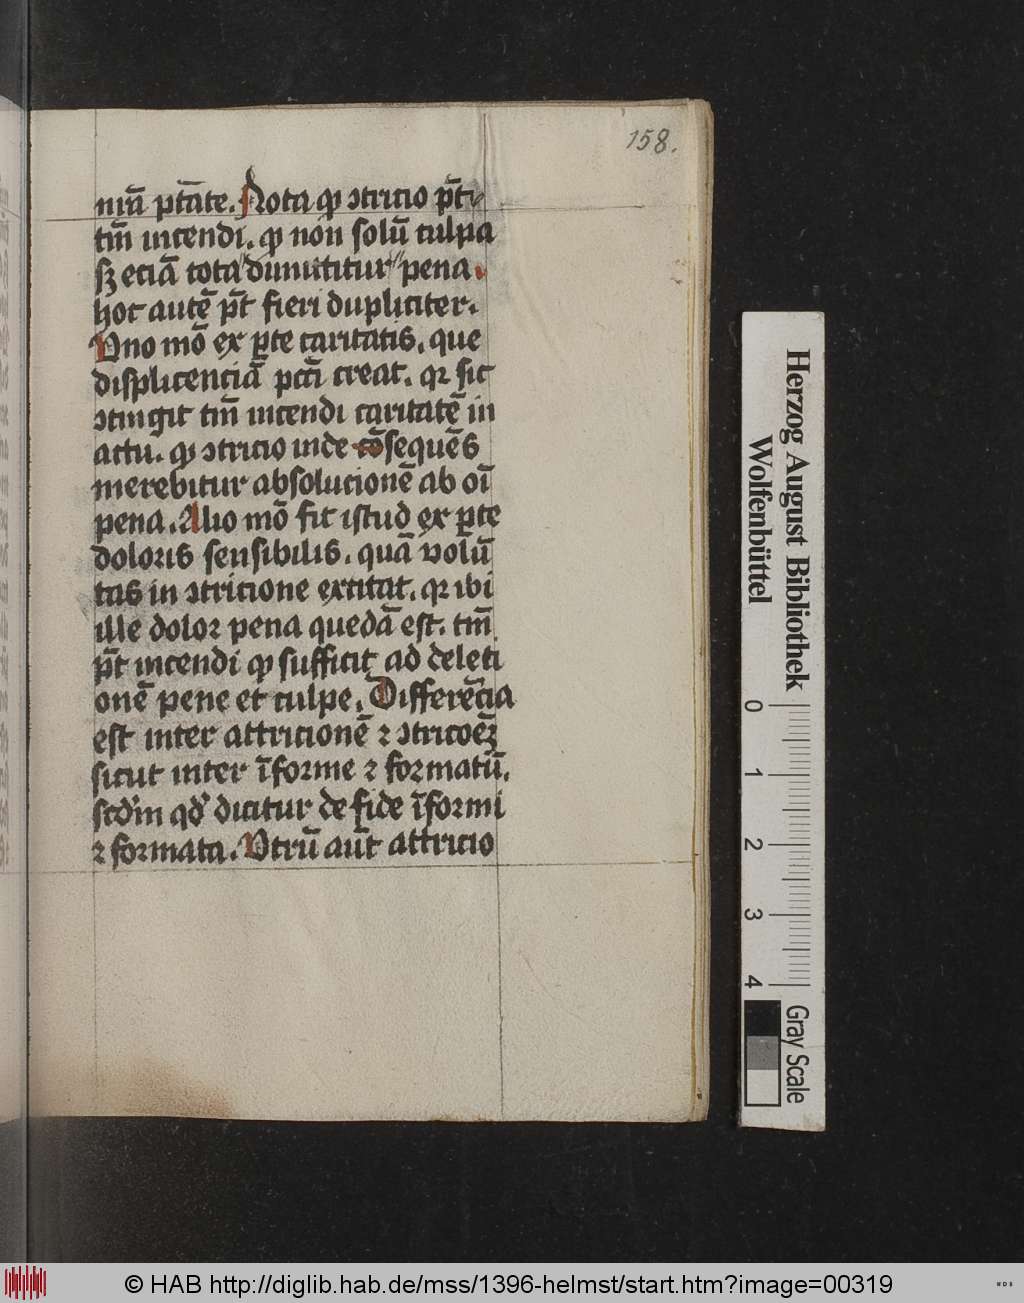 158.
niā ptāte. Nota qꝫ ↄtricio pt̄
tm̄ incendi. qꝫ non solū culpa
sꝫ eciā tota dimittitur pena.
hoc autē pt̄ fieri dupliciter.
Uno mō ex ꝑte caritatis. que
displicenciā pccī creat. qꝛ sic
ↄtingit tm̄ incendi caritatē in
actu. qꝫ ↄtricio inde cōsequēs
merebitur absolucionē ab oī
pena. Alio mō fit istud ex ꝑte
doloris sensibilis. quā volū
tas in ↄtricione excitat. qꝛ ibi
ille dolor pena quedā est. tm̄
pt̄ incendi qꝫ sufficit ad deleti
onē pene et culpe. Differēcia
est inter attricionē ⁊ ↄtricoēꝫ
sicut inter īforme ⁊ formatū.
scdm̄ qd̓ dicitur de fide īformi
⁊ formata. Utrū aūt attricio
Herzog August Bibliothek
Wolfenbüttel
0 1 2 3 4
Gray Scale
© HAB http://diglib.hab.de/mss/1396-helmst/start.htm?image=00319
WDB